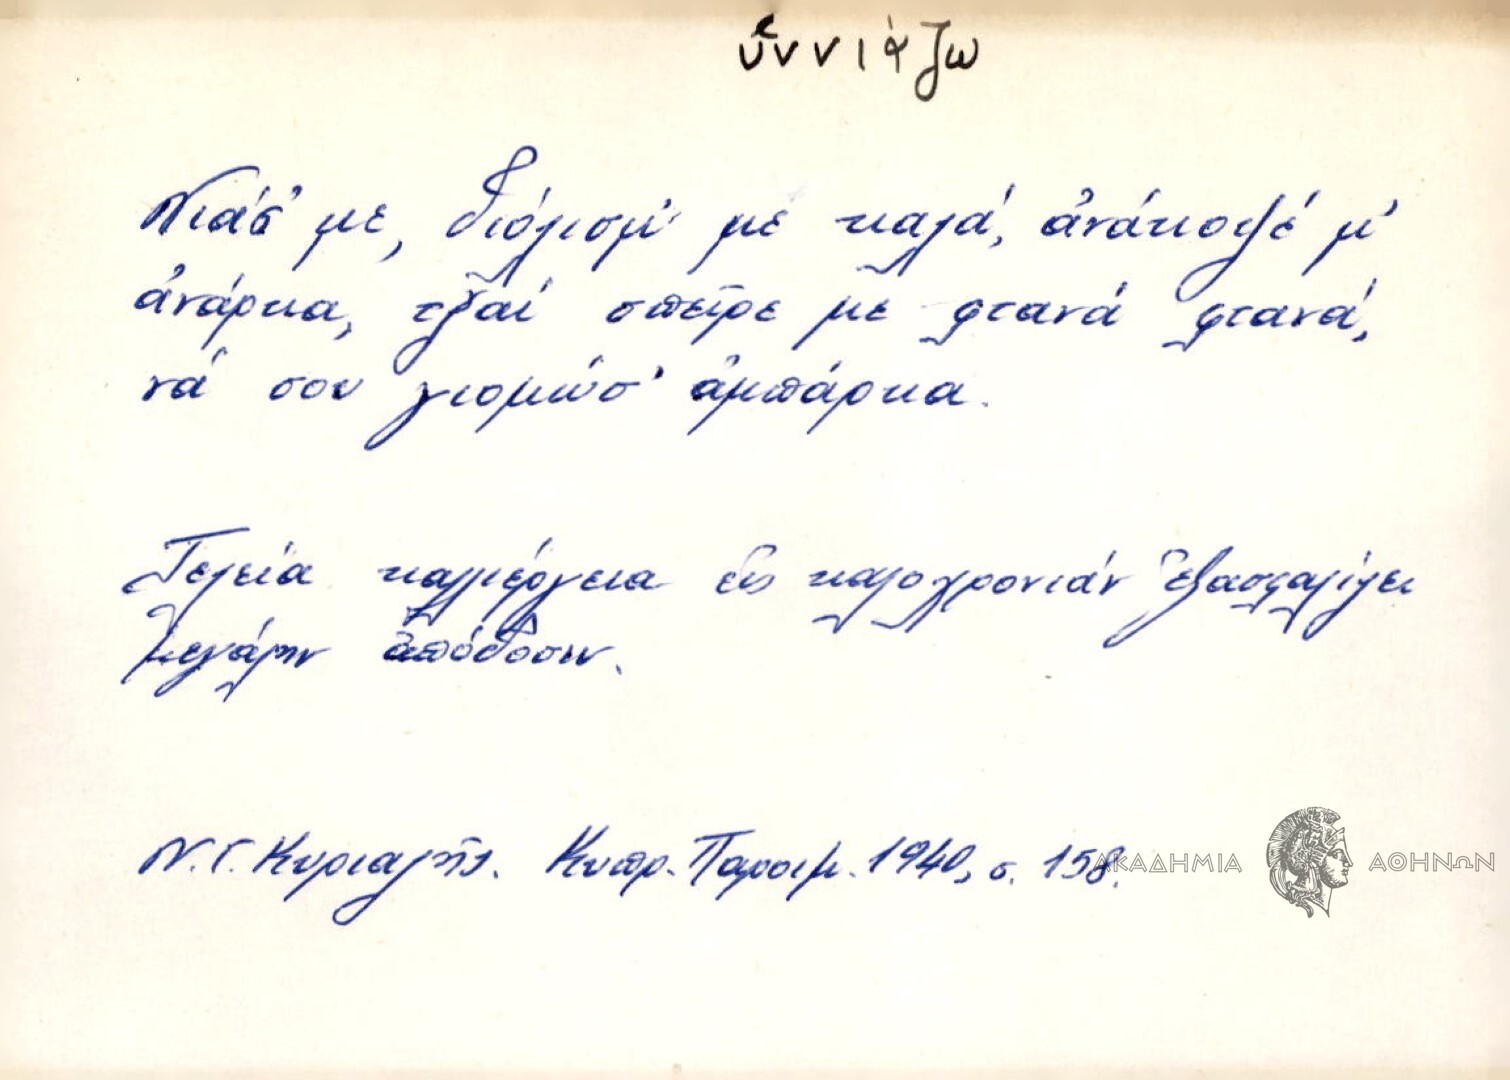 ὑννιάζω
Νιάσ' με, διόλισμ' με καλά, ἀνάκοψέ μ'
ἀνάρκα, τζαί σπεῖρε με φτανά φτανά,
νά σου γιομώσ' ἀμπάρκα.
Τελεία καλλιέργεια εἰς καλοχρονιάν ἐξασφαλίζει
μεγάλην ἀπόδοσιν.
Ν. Γ. Κυριαζῆς. Κυπρ. Παροιμ. 1940, σ. 158.
ΑΚΑΔΗΜΙΑ ΑΘΗΝΩΝ